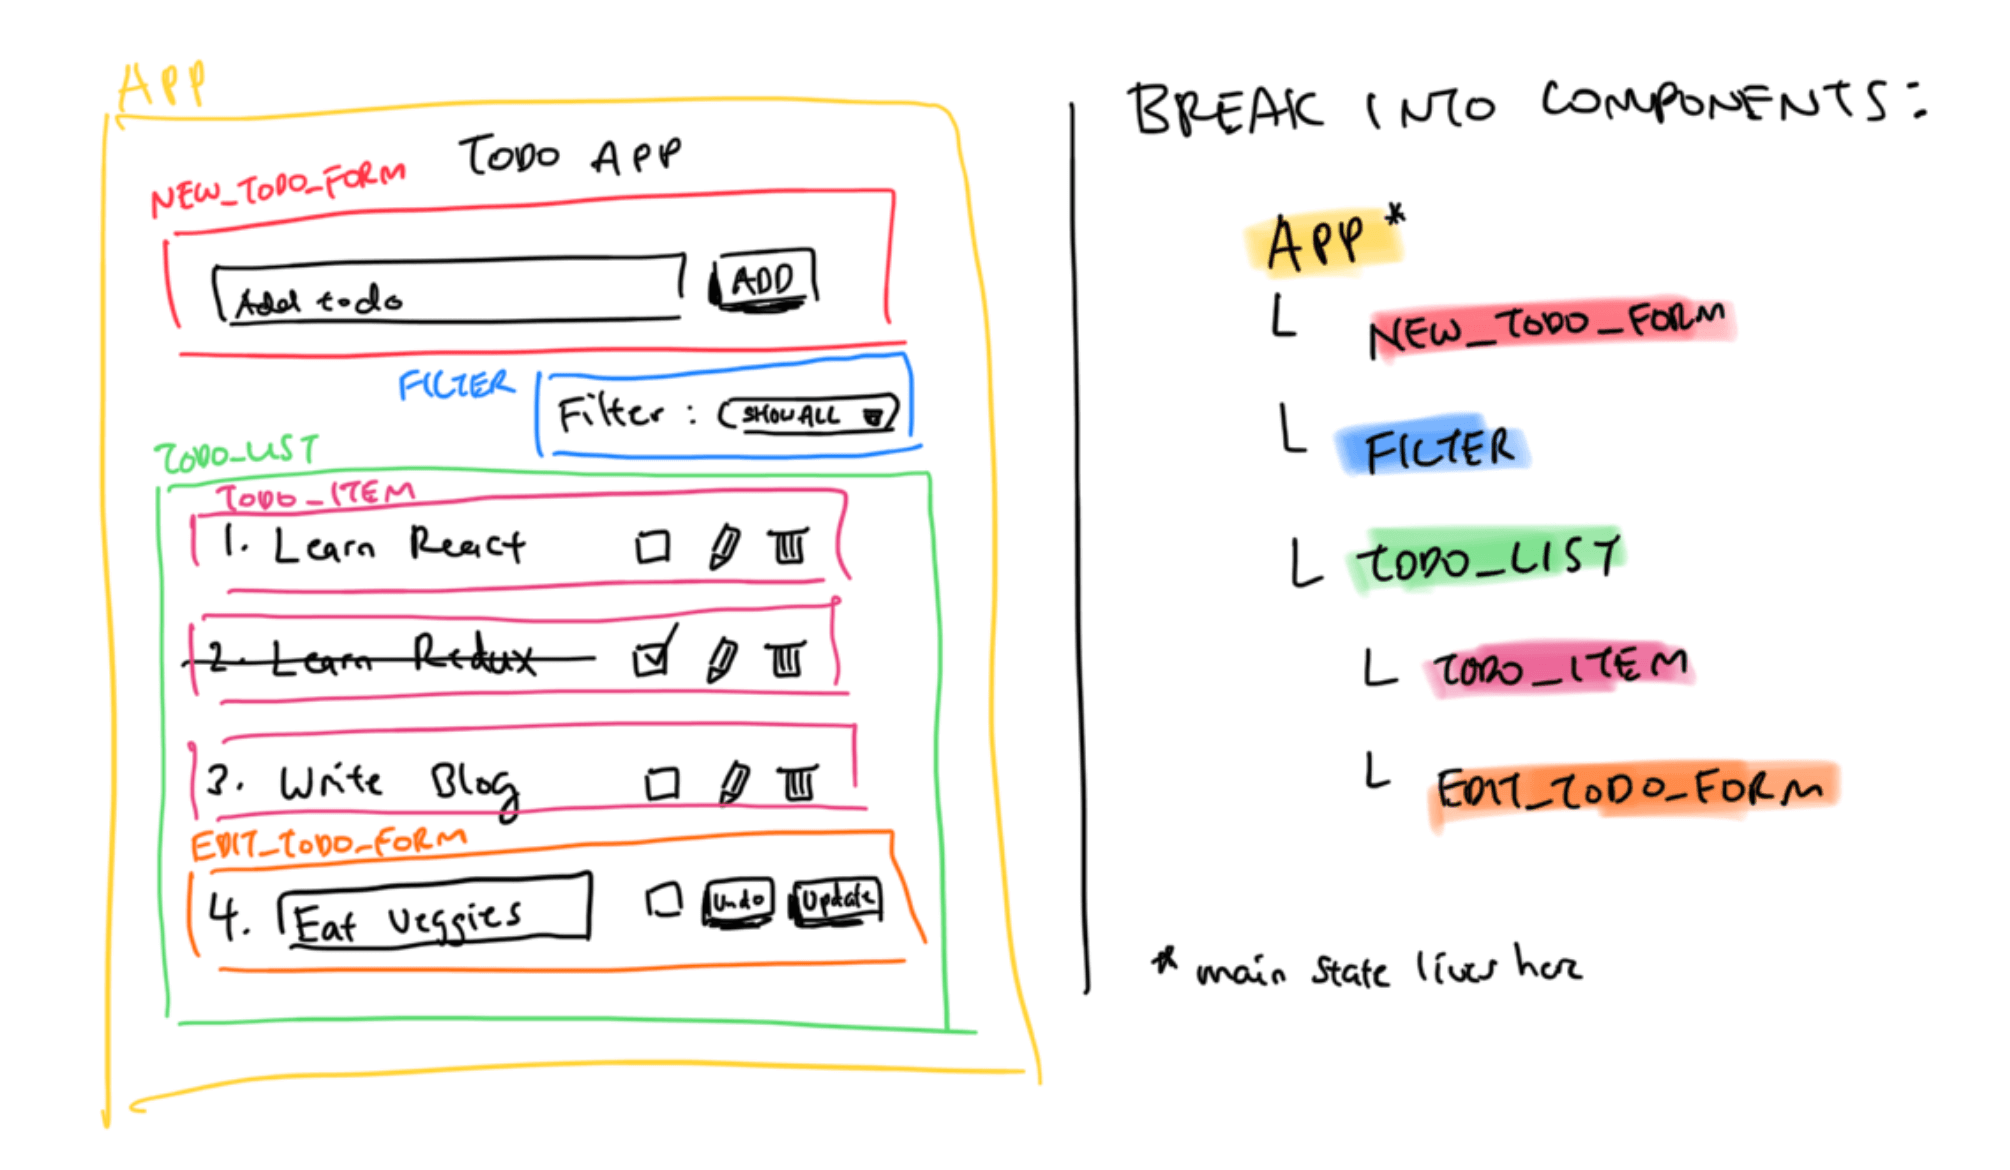 APP
TODO APP
NEW_TODO_FORM
Add todo
ADD
FILTER
Filter : SHOW ALL
TODO_LIST
TODO_ITEM
1. Learn React
2. Learn Redux
3. Write Blog
EDIT_TODO_FORM
4. Eat Veggies
Undo
Update
BREAK INTO COMPONENTS:
APP *
NEW_TODO_FORM
FILTER
TODO_LIST
TODO_ITEM
EDIT_TODO_FORM
* main state lives here